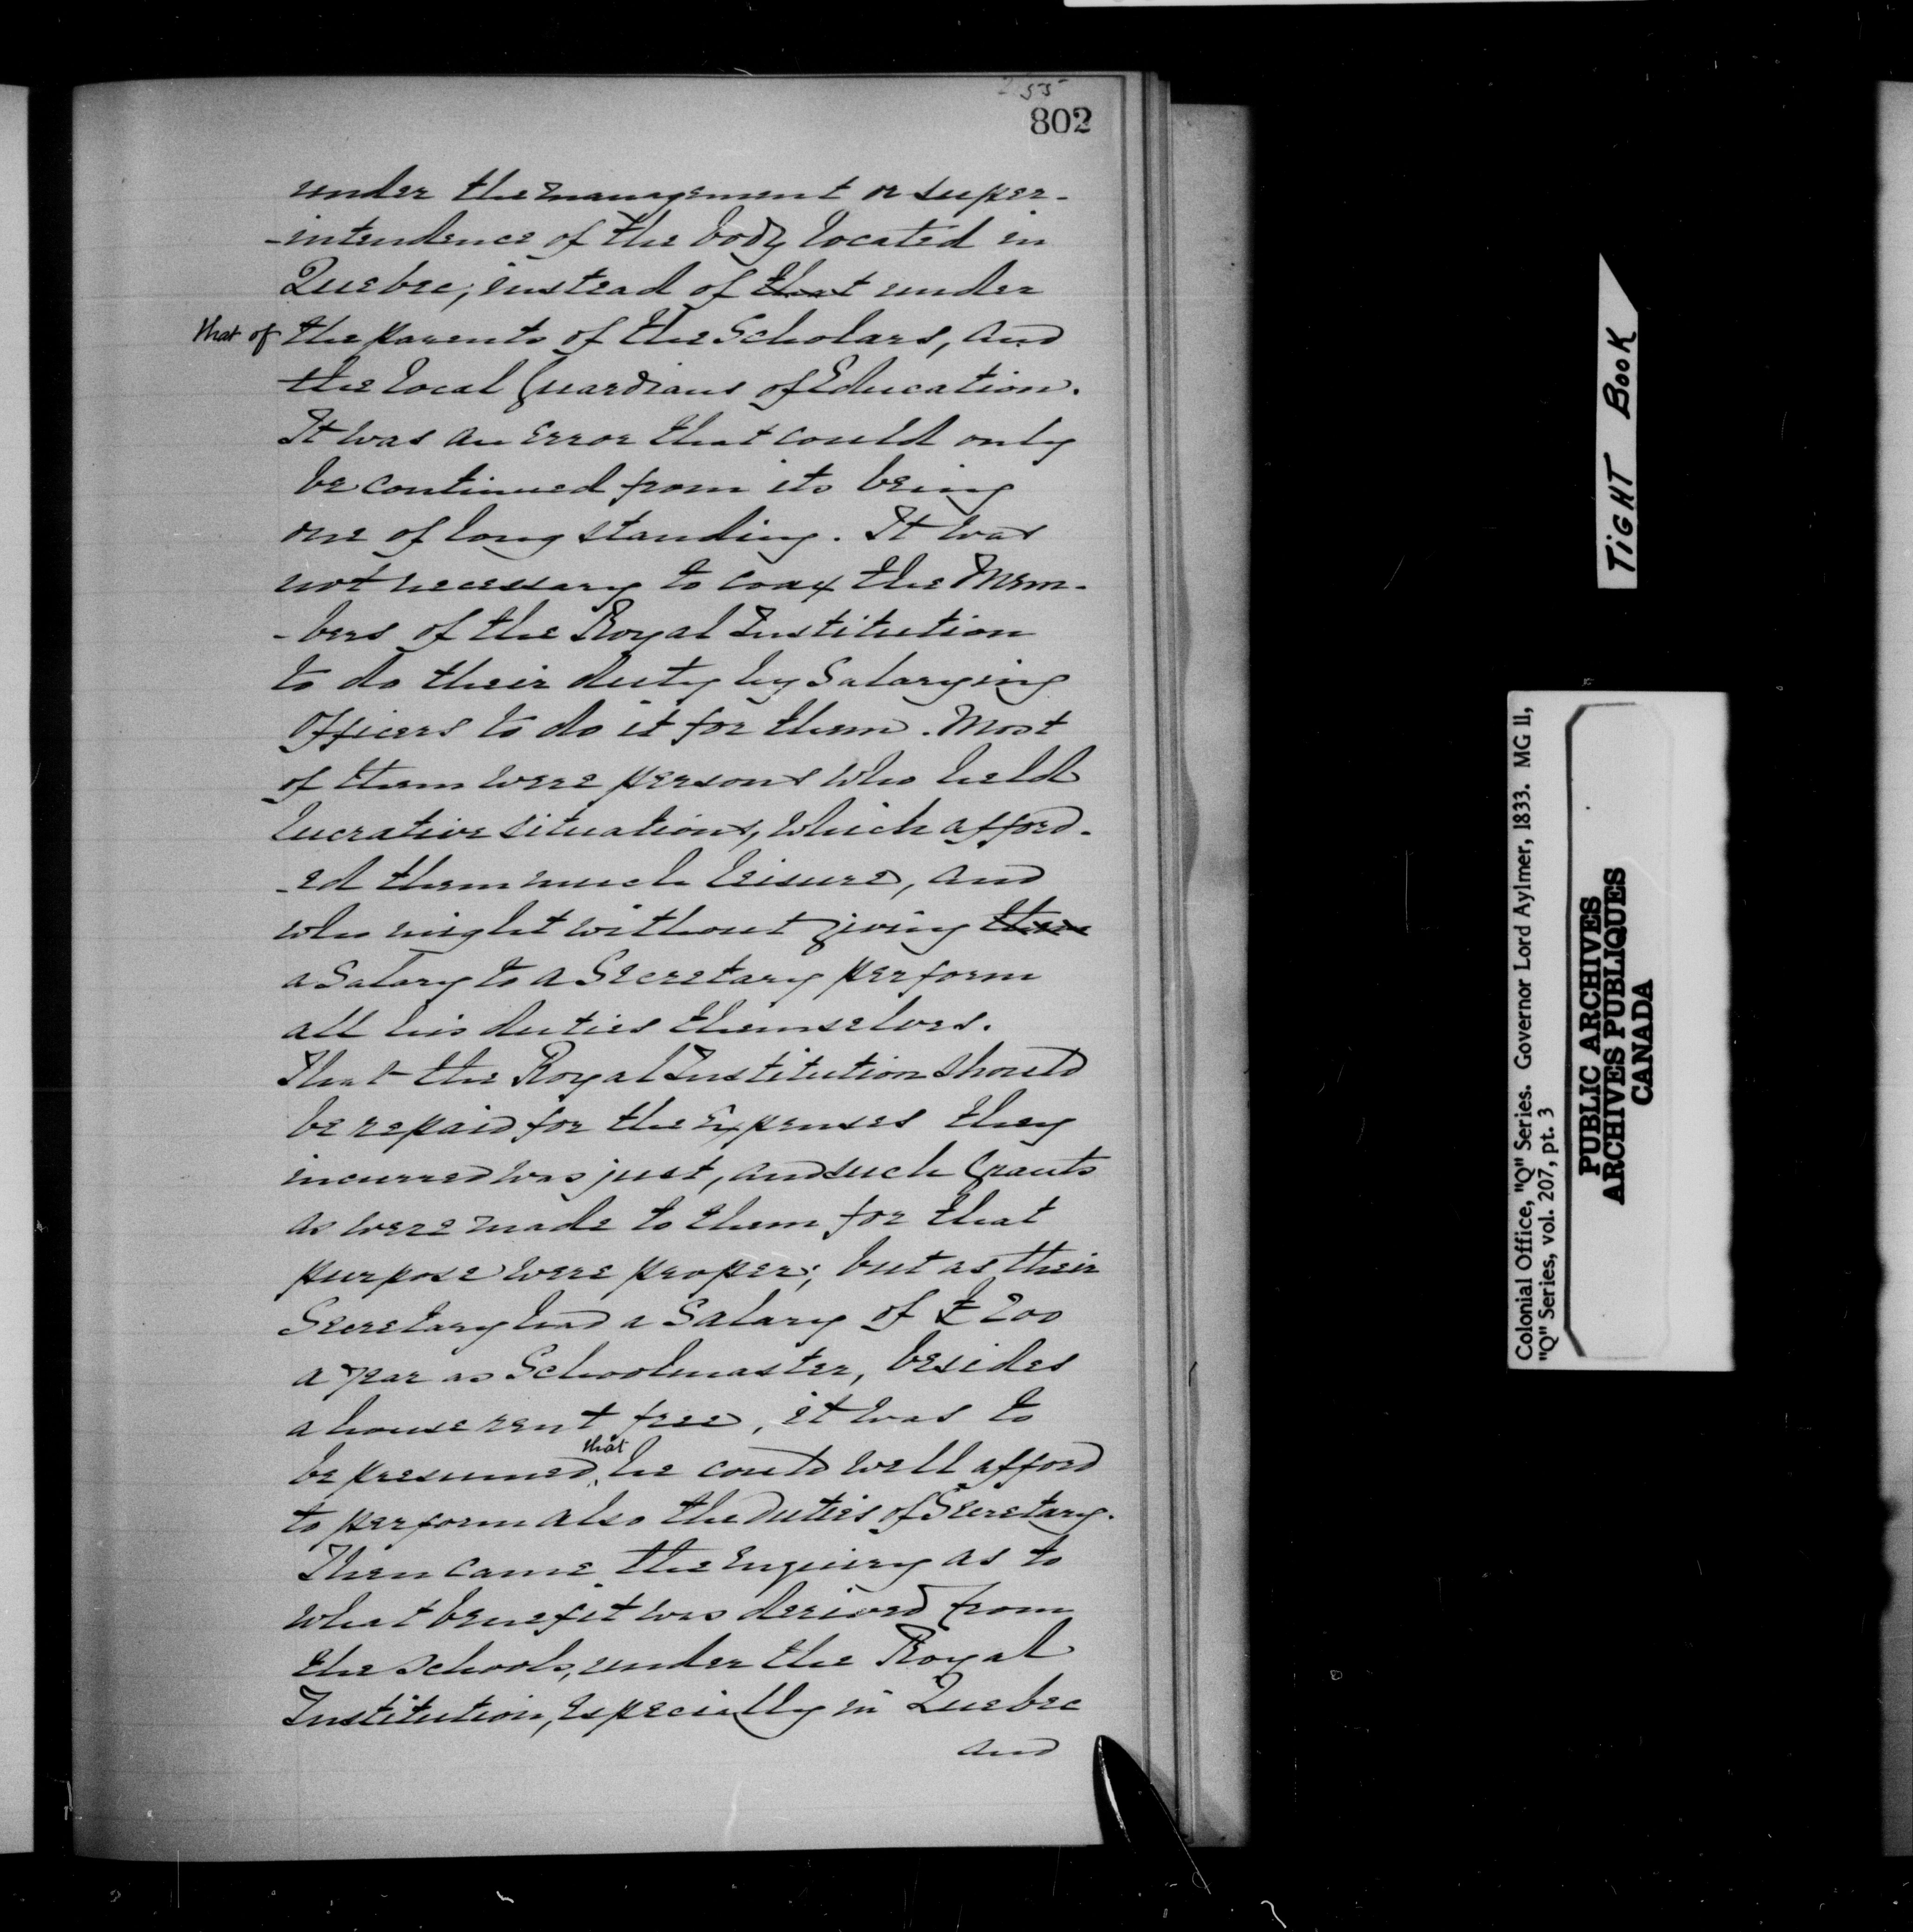 255
802
under the management or super-
-intendence of the body located in
Quebec; instead of that under
that of the parents of the Scholars, and
the local Guardians of Education.
It was an Error that could only
be continued from its being
one of long standing. It was
not necessary to coax the Mem-
-bers of the Royal Institution
to do their duty by Salarying
Officers to do it for them. Most
of them were persons who held
lucrative situations, which afford-
-ed them much leisure, and
who might without giving
a Salary to a Secretary perform
all his duties themselves.
That the Royal Institution should
be repaid for the Expenses they
incurred was just, and such Grants
as were made to them for that
purpose were proper; but as their
Secretary had a Salary of £200
a year as Schoolmaster, besides
a house rent free, it was to
be presumed that he could well afford
to perform also the duties of Secretary.
Then came the Enquiry as to
what benefit was derived from
the schools, under the Royal
Institution, Especially in Quebec
and
TIGHT BOOK
Colonial Office, "Q" Series. Governor Lord Aylmer, 1833. MG 11,
"Q" Series, vol. 207, pt. 3
PUBLIC ARCHIVES
ARCHIVES PUBLIQUES
CANADA